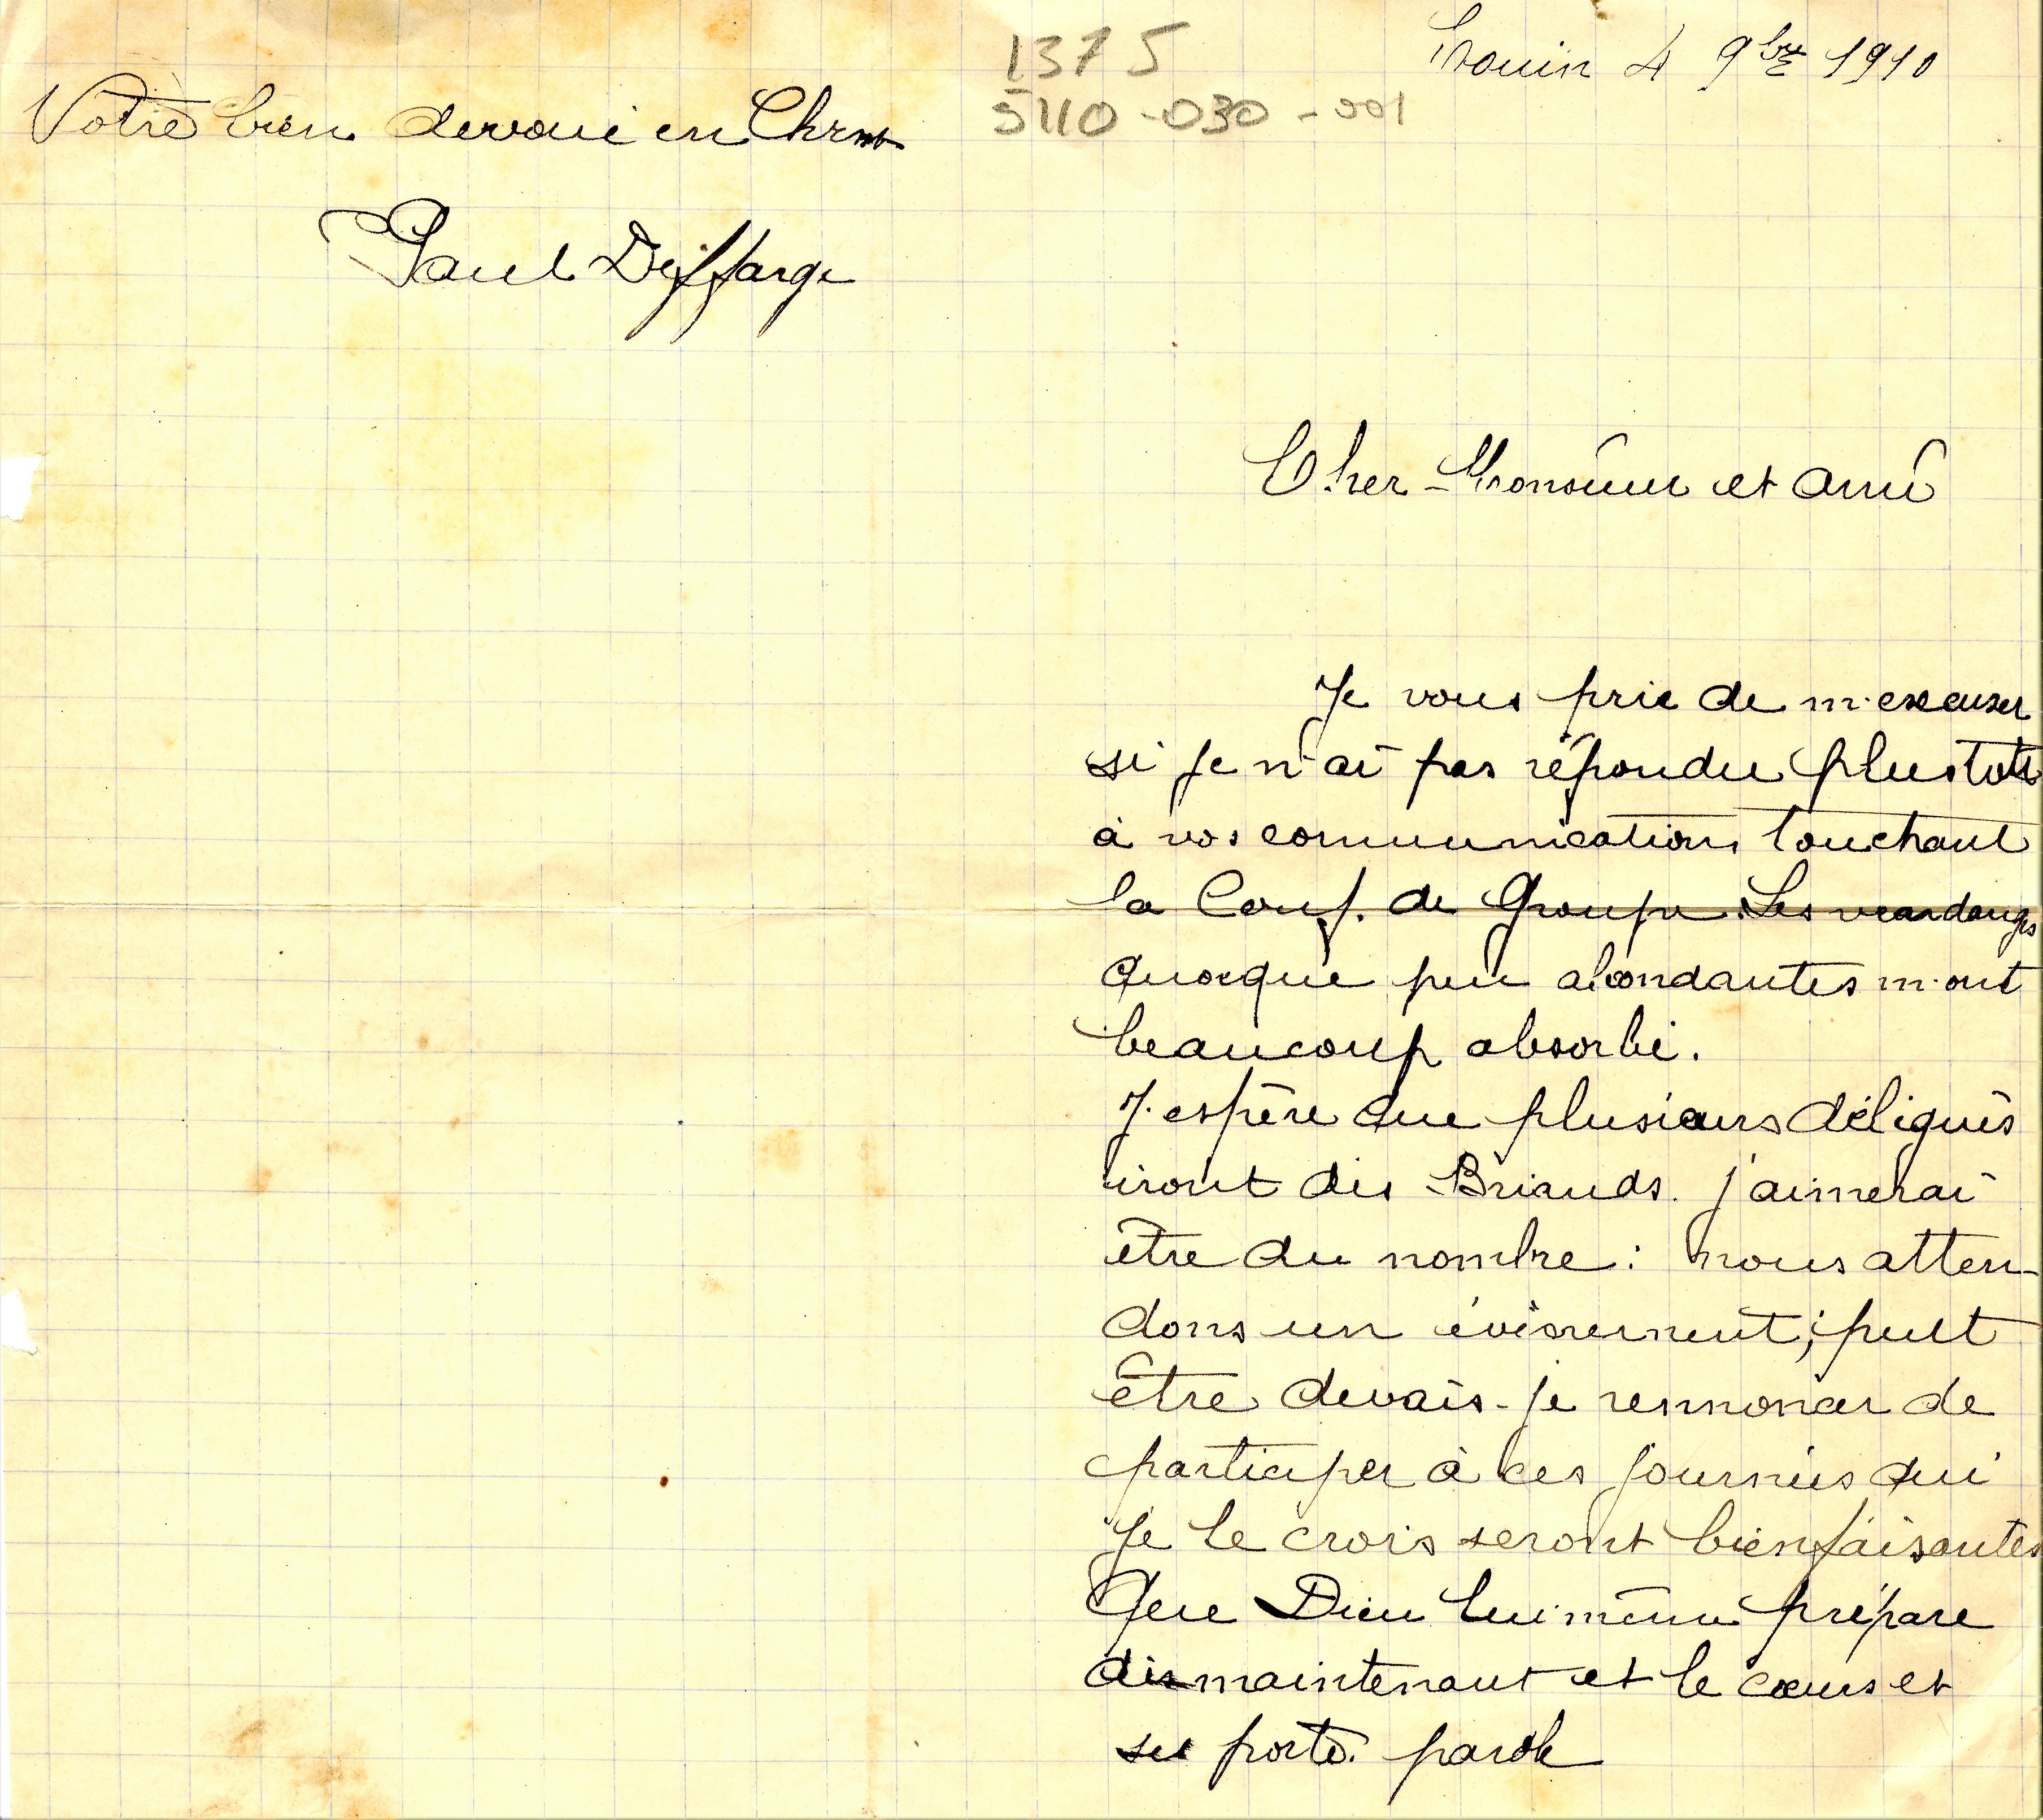 1375
5110-030-001
Louin 4 9bre 1910
Cher Monsieur et ami
Je vous prie de m'excuser
si je n'ai pas répondu plustot
à vos communications touchant
la Conf. de Groupe. Les vendanges
quoique peu abondantes m'ont
beaucoup absorbé.
J'espère que plusieurs délégués
iront des Briands. j'aimerai
être du nombre : nous atten-
dons un évènement; peut
être devais-je rennoncer de
participer à ces journées qui
je le crois seront bienfaisantes
Que Dieu lui même prépare
dès maintenant et le cœurs et
ses porte. parole
Votre bien devoué en Christ
Paul Deffarge